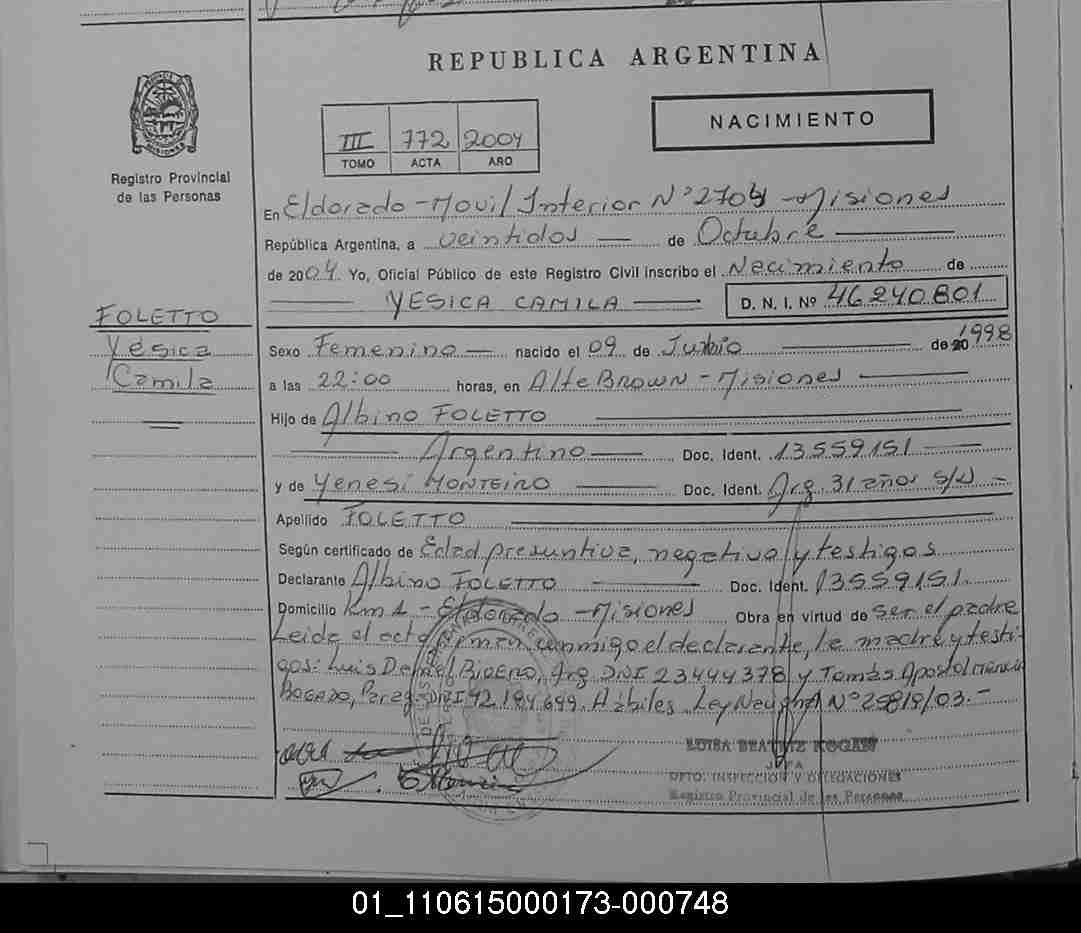 REPUBLICA ARGENTINA
NACIMIENTO
III 772 2004
TOMO ACTA AÑO
Registro Provincial
de las Personas
En Eldorado - Movil Interior N° 2704 - Misiones
República Argentina, a veintidos de Octubre
de 2004 Yo, Oficial Público de este Registro Civil inscribo el Nacimiento de
YESICA CAMILA D. N. I. Nº 46240801
FOLETTO
Yesica
Camila
Sexo Femenino nacido el 09 de Junio de 20 1998
a las 22:00 horas, en Alte Brown - Misiones
Hijo de Albino FOLETTO
Argentino Doc. Ident. 13559151
y de Yenesi MONTEIRO Doc. Ident. Arg. 31 años s/d
Apellido FOLETTO
Según certificado de Edad presuntiva, negativa y testigos
Declarante Albino FOLETTO Doc. Ident. 13559151
Domicilio Km 1 - Eldorado - Misiones Obra en virtud de ser el padre
Leida el acta firman conmigo el declarante, la madre y testi-
gos: Luis Daniel Arg DNI 23444378 y Tomás Apostol
BOGADO, Parag. DNI 92.184.699. Hábiles. Ley N° 25819/03.-
LUISA BEATRIZ KOGAN
JEFA
DPTO. INSPECCION Y DELEGACIONES
Registro Provincial de las Personas
01_110615000173-000748